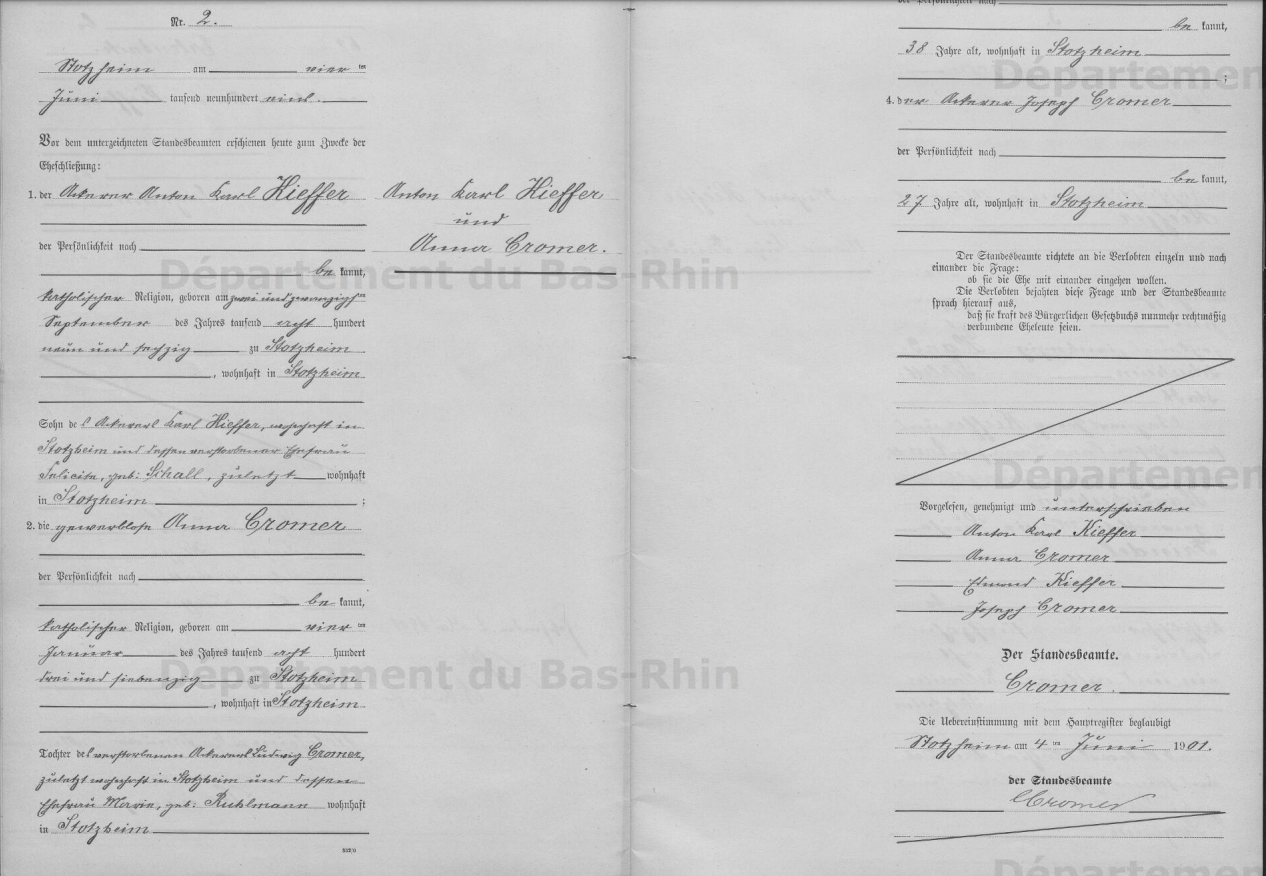 Nr. 2.
Stotzheim am vier ten
Juni tausend neunhundert eins.
Vor dem unterzeichneten Standesbeamten erschienen heute zum Zwecke der
Eheschließung:
1. der Ackerer Anton Karl Kieffer
der Persönlichkeit nach
be kannt,
katholischer Religion, geboren am zwei und zwanzigsten
September des Jahres tausend acht hundert
neun und sechzig zu Stotzheim
, wohnhaft in Stotzheim
Sohn des Ackerers Karl Kieffer, wohnhaft in
Stotzheim und dessen verstorbener Ehefrau
Felicite, geb: Schall, zuletzt wohnhaft
in Stotzheim ;
2. die gewerblose Anna Cromer
der Persönlichkeit nach
be kannt,
katholischer Religion, geboren am vier ten
Januar des Jahres tausend acht hundert
drei und siebenzig zu Stotzheim
, wohnhaft in Stotzheim
Tochter des verstorbenen Ackerers Ludwig Cromer,
zuletzt wohnhaft in Stotzheim und dessen
Ehefrau Marie, geb: Ruhlmann wohnhaft
in Stotzheim
Anton Karl Kieffer
und
Anna Cromer.
Département du Bas-Rhin
Département du Bas-Rhin
der Persönlichkeit nach
be kannt,
38 Jahre alt, wohnhaft in Stotzheim
;
4. der Ackerer Joseph Cromer
der Persönlichkeit nach
be kannt,
27 Jahre alt, wohnhaft in Stotzheim
Der Standesbeamte richtete an die Verlobten einzeln und nach
einander die Frage:
ob sie die Ehe mit einander eingehen wollen.
Die Verlobten bejahten diese Frage und der Standesbeamte
sprach hierauf aus,
daß sie kraft des Bürgerlichen Gesetzbuchs nunmehr rechtmäßig
verbundene Eheleute seien.
Vorgelesen, genehmigt und unterschrieben
Anton Karl Kieffer
Anna Cromer
Edmond Kieffer
Joseph Cromer
Der Standesbeamte.
Cromer.
Die Uebereinstimmung mit dem Hauptregister beglaubigt
Stotzheim am 4 ten Juni 1901.
der Standesbeamte
Cromer
Départemen
Départemen
Départemen